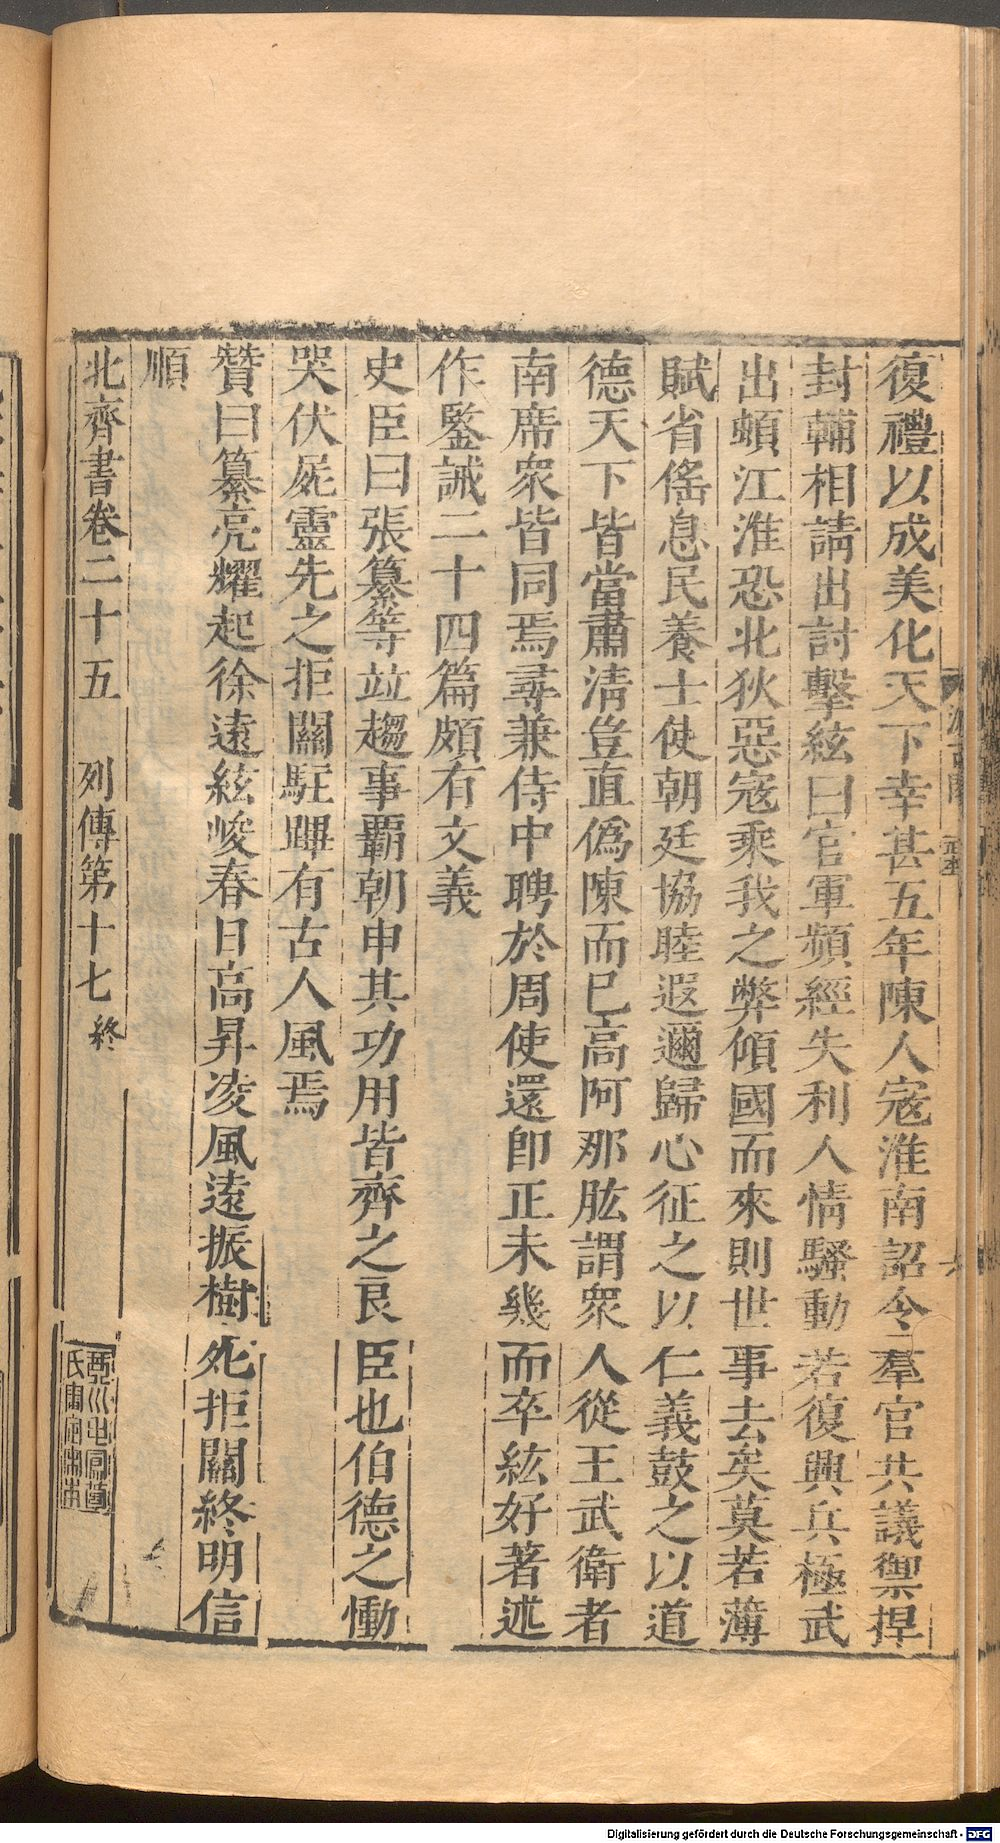 復禮以成美化天下幸甚五年陳人寇淮南詔令羣官共議禦捍
封輔相請出討擊紘曰官軍頻經失利人情騷動若復興兵極武
出頓江淮恐北狄惡寇乘我之弊傾國而來則世事去矣莫若薄
賦省傜息民養士使朝廷協睦遐邇歸心征之以仁義鼓之以道
德天下皆當肅清豈直僞陳而已高阿那肱謂衆人從王武衛者
南席衆皆同焉尋兼侍中聘於周使還卽正未幾而卒紘好著述
作鑒誡二十四篇頗有文義
史臣曰張纂等竝趨事霸朝申其功用皆齊之良臣也伯德之慟
哭伏屍靈先之拒關駐蹕有古人風焉
贊曰纂亮耀起徐遠紘峻春日高昇凌風遠振樹死拒關終明信
順
北齊書卷二十五 列傳第十七 終
Digitalisierung gefördert durch die Deutsche Forschungsgemeinschaft - DFG